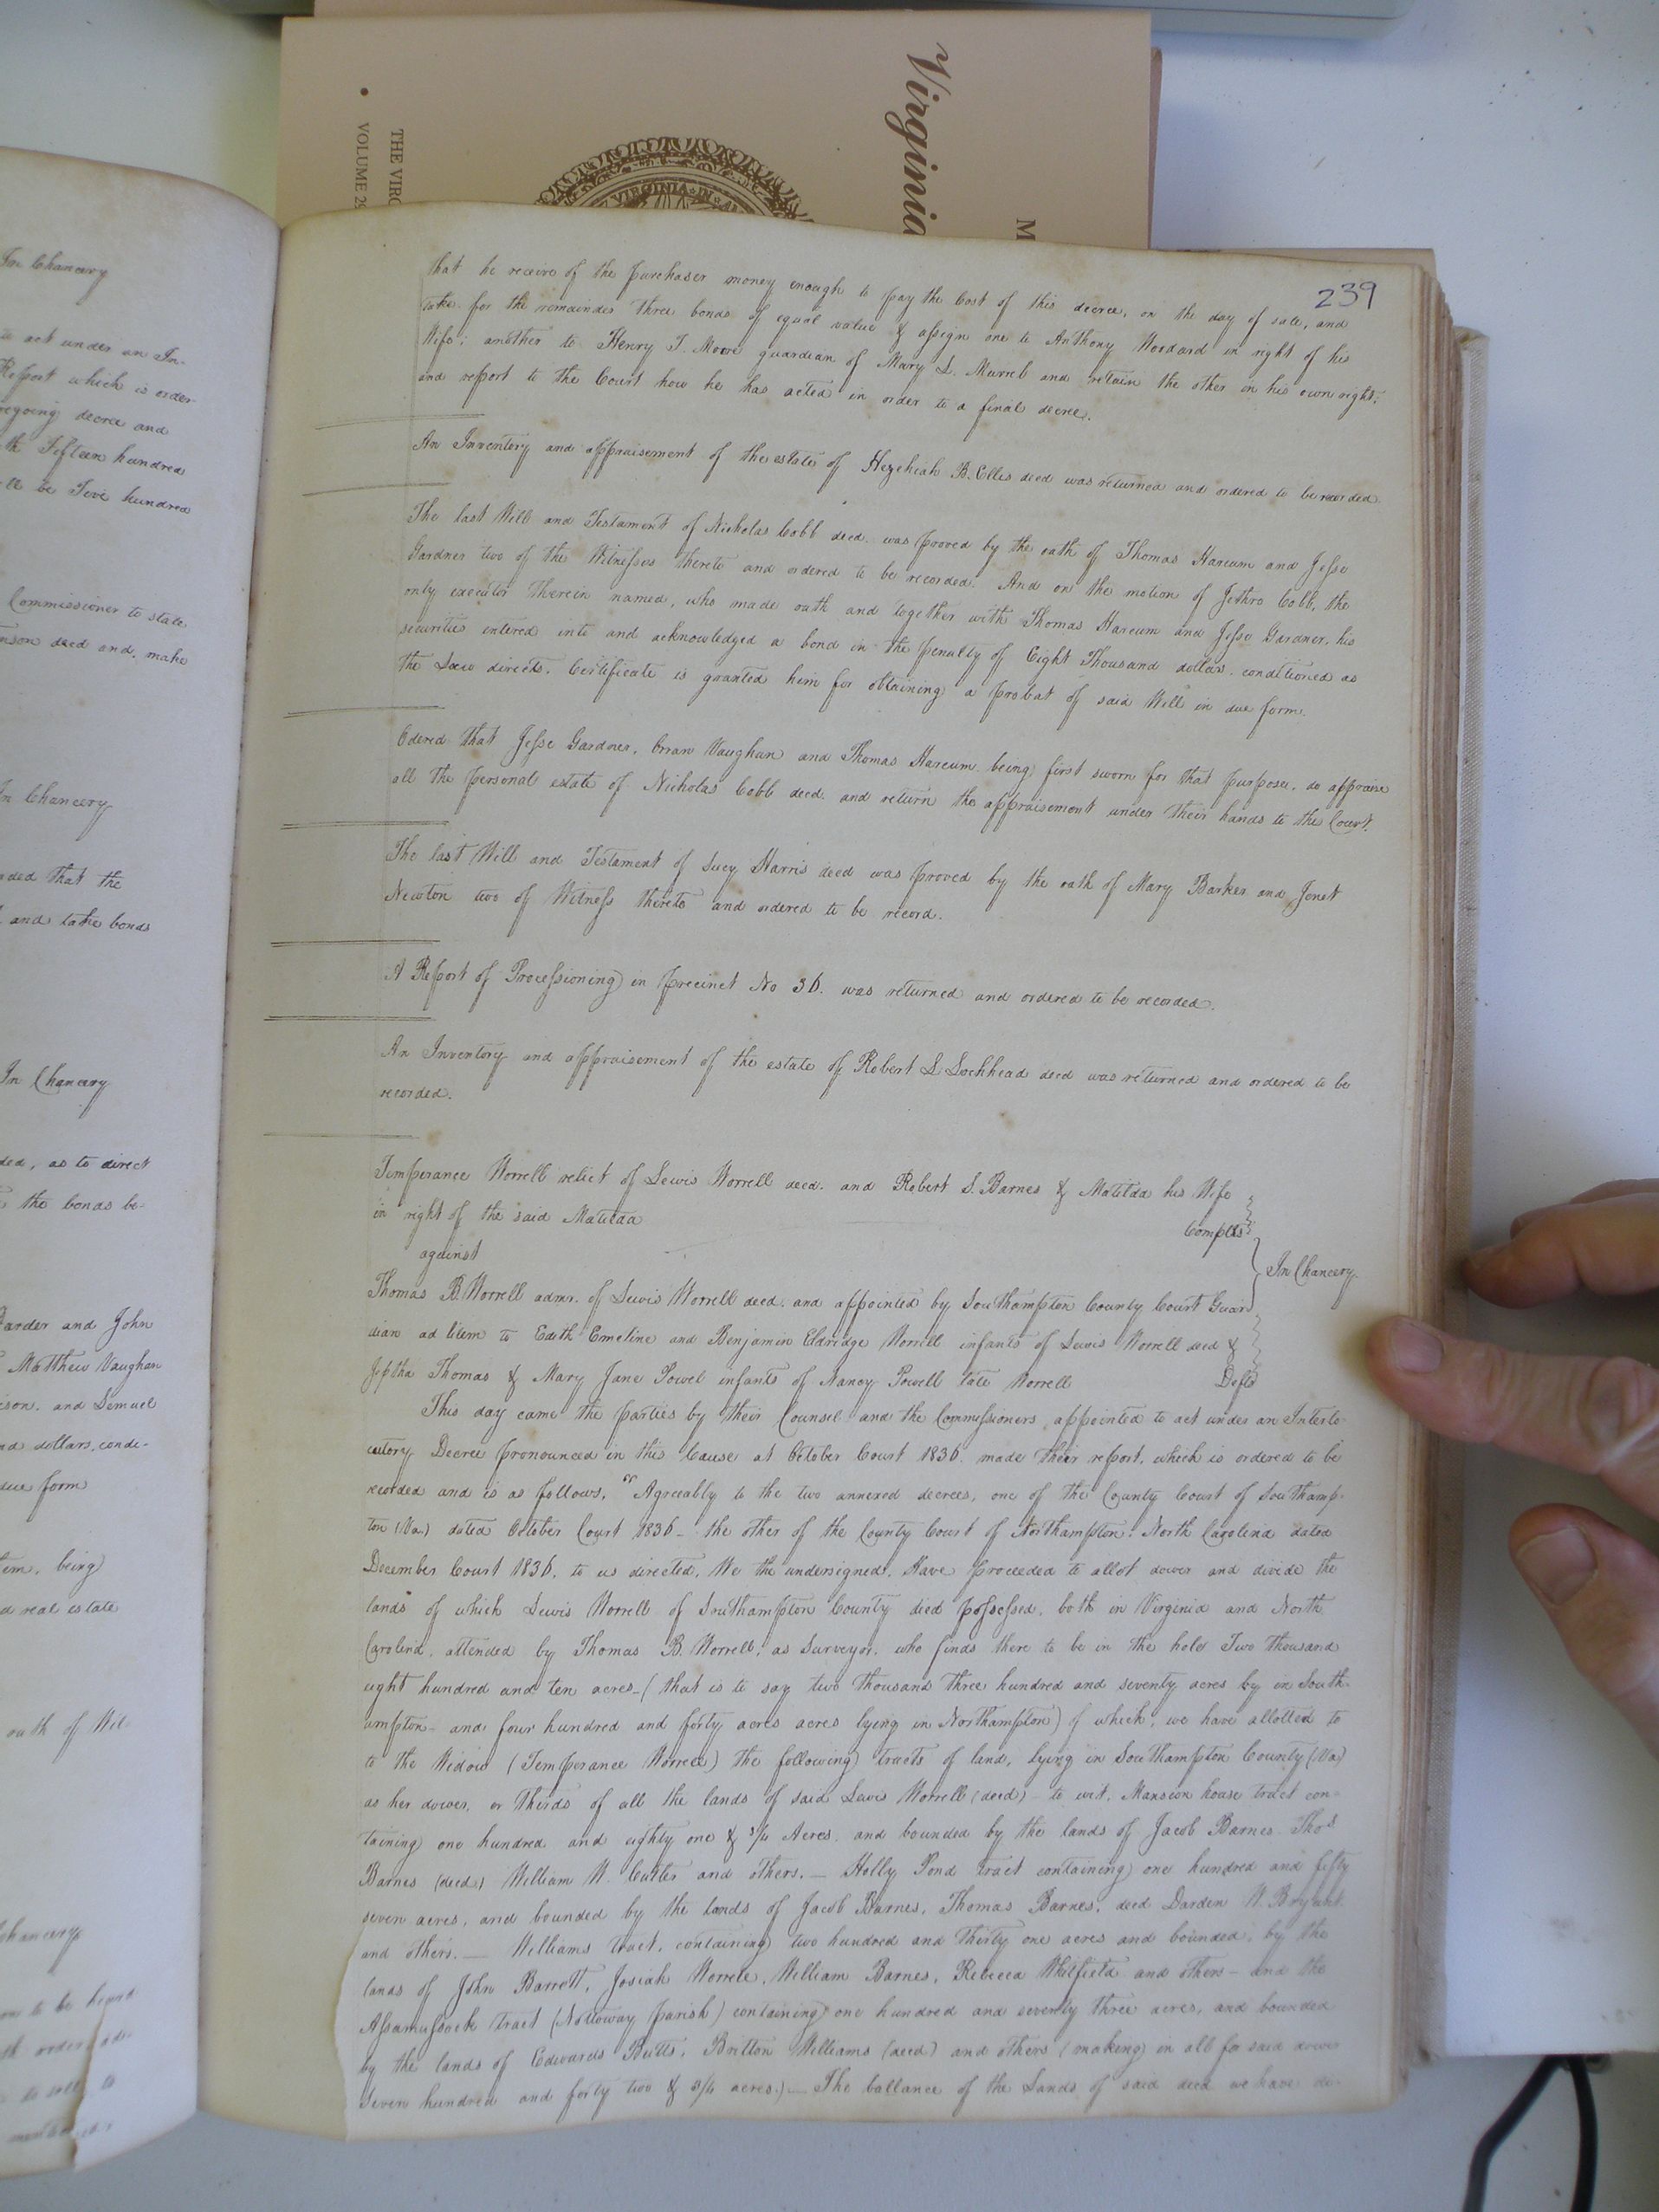 Virginia
M
THE VIRG
VOLUME 29
VIRGINIA IN
In Chancery
act under an In-
Report which is order
egoing decree and
Fifteen hundred
be Five hundred
Commissioner to state
deed and make
In Chancery
ded that the
and take bonds
In Chancery
ded, as to direct
the bonds be-
arder and John
Matthew Vaughan
ison. and Lemuel
nd dollars, condi-
due form
being
d real estate
oath of Wil-
hancery
to be heard
239
that he receive of the purchaser money enough to pay the Cost of this decree, on the day of sale, and
take for the remainder three bonds of equal value & assign one to Anthony Woodard in right of his
Wife; another to Henry T. Moore guardian of Mary L. Murrel and retain the other in his own right;
and report to the Court how he has acted in order to a final decree.
An Inventory and appraisement of the estate of Hezekiah B. Ellis deed was returned and ordered to be recorded.
The last Will and Testament of Nicholas Cobb deed. was proved by the oath of Thomas Harcum and Jesse
Gardner two of the Witnesses thereto and ordered to be recorded. And on the motion of Jethro Cobb, the
only executor therein named, who made oath and together with Thomas Harcum and Jesse Gardner, his
securities entered into and acknowledged a bond in the penalty of Eight Thousand dollars. conditioned as
the Law directs. Certificate is granted him for obtaining a probat of said Will in due form.
Odered that Jesse Gardner, Orran Vaughan and Thomas Harcum being first sworn for that purpose, do appraise
all the personal estate of Nicholas Cobb deed. and return the appraisement under their hands to the Court.
The last Will and Testament of Lucy Harris deed was proved by the oath of Mary Barker and Jonet
Newton two of Witness thereto and ordered to be record.
A Report of Processioning in precinct No 36. was returned and ordered to be recorded.
An Inventory and appraisement of the estate of Robert S Lochhead deed was returned and ordered to be
recorded.
Temperance Worrell relict of Lewis Worrell deed. and Robert S. Barnes & Matilda his Wife
in right of the said Matilda Complts
against
In Chancery.
Thomas B. Worrell admr. of Lewis Worrell deed. and appointed by Southampton County Court Guar
dian ad litem to Edith Emeline and Benjamin Eldridge Worrell infants of Lewis Worrell deed &
Jeptha Thomas & Mary Jane Powel infants of Nancy Powell late Worrell Defts
This day came the parties by their Counsel and the Commissioners appointed to act under an Interlo-
cutory Decree pronounced in this Cause at October Court 1836. made their report, which is ordered to be
recorded and is as follows, "Agreeably to the two annexed decrees, one of the County Court of Southamp-
ton (Va.) dated October Court 1836 - the other of the County Court of Northampton, North Carolina dated
December Court 1836, to us directed, We the undersigned, Have proceeded to allot dower and divide the
lands of which Lewis Worrell of Southampton County died possessed, both in Virginia and North
Carolina, attended by Thomas B. Worrell, as Surveyor, who finds there to be in the hole Two thousand
eight hundred and ten acres - (that is to say two thousand three hundred and seventy acres by in South-
ampton - and four hundred and forty acres acres lying in Northampton) of which, we have allotted to
to the Widow (Temperance Worrell) the following tracts of land, lying in Southampton County (Va)
as her dower, or Thirds of all the lands of said Lewis Worrell (deed) - to wit, Mansion house tract con-
taining one hundred and eighty one & 3/4 Acres. and bounded by the lands of Jacob Barnes Thos
Barnes (deed.) William W. Cutler and others. — Holly Pond tract containing one hundred and fifty
seven acres, and bounded by the lands of Jacob Barnes, Thomas Barnes, deed Darden W. Bryant
and others. — Williams tract, containing two hundred and Thirty one acres and bounded, by the
lands of John Barrott, Josiah Worrell, William Barnes, Rebecca Whitfield and others - and the
Assamussock tract (Nottoway parish) containing one hundred and seventy three acres, and bounded
by the lands of Edwards Butts, Britton Williams (deed) and others (making in all for said dower
Seven hundred and forty two & 3/4 acres.) — The ballance of the Lands of said deed we have de-